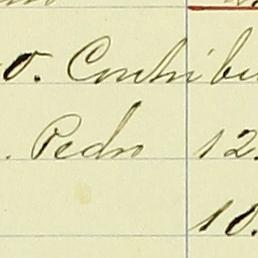 o. Contribu
. Pedro 12.
10.